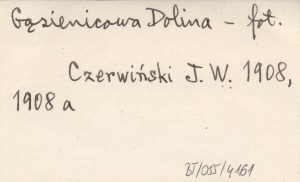 Gąsienicowa Dolina - fot.
Czerwiński J. W. 1908,
1908 a
BJ/055/4161